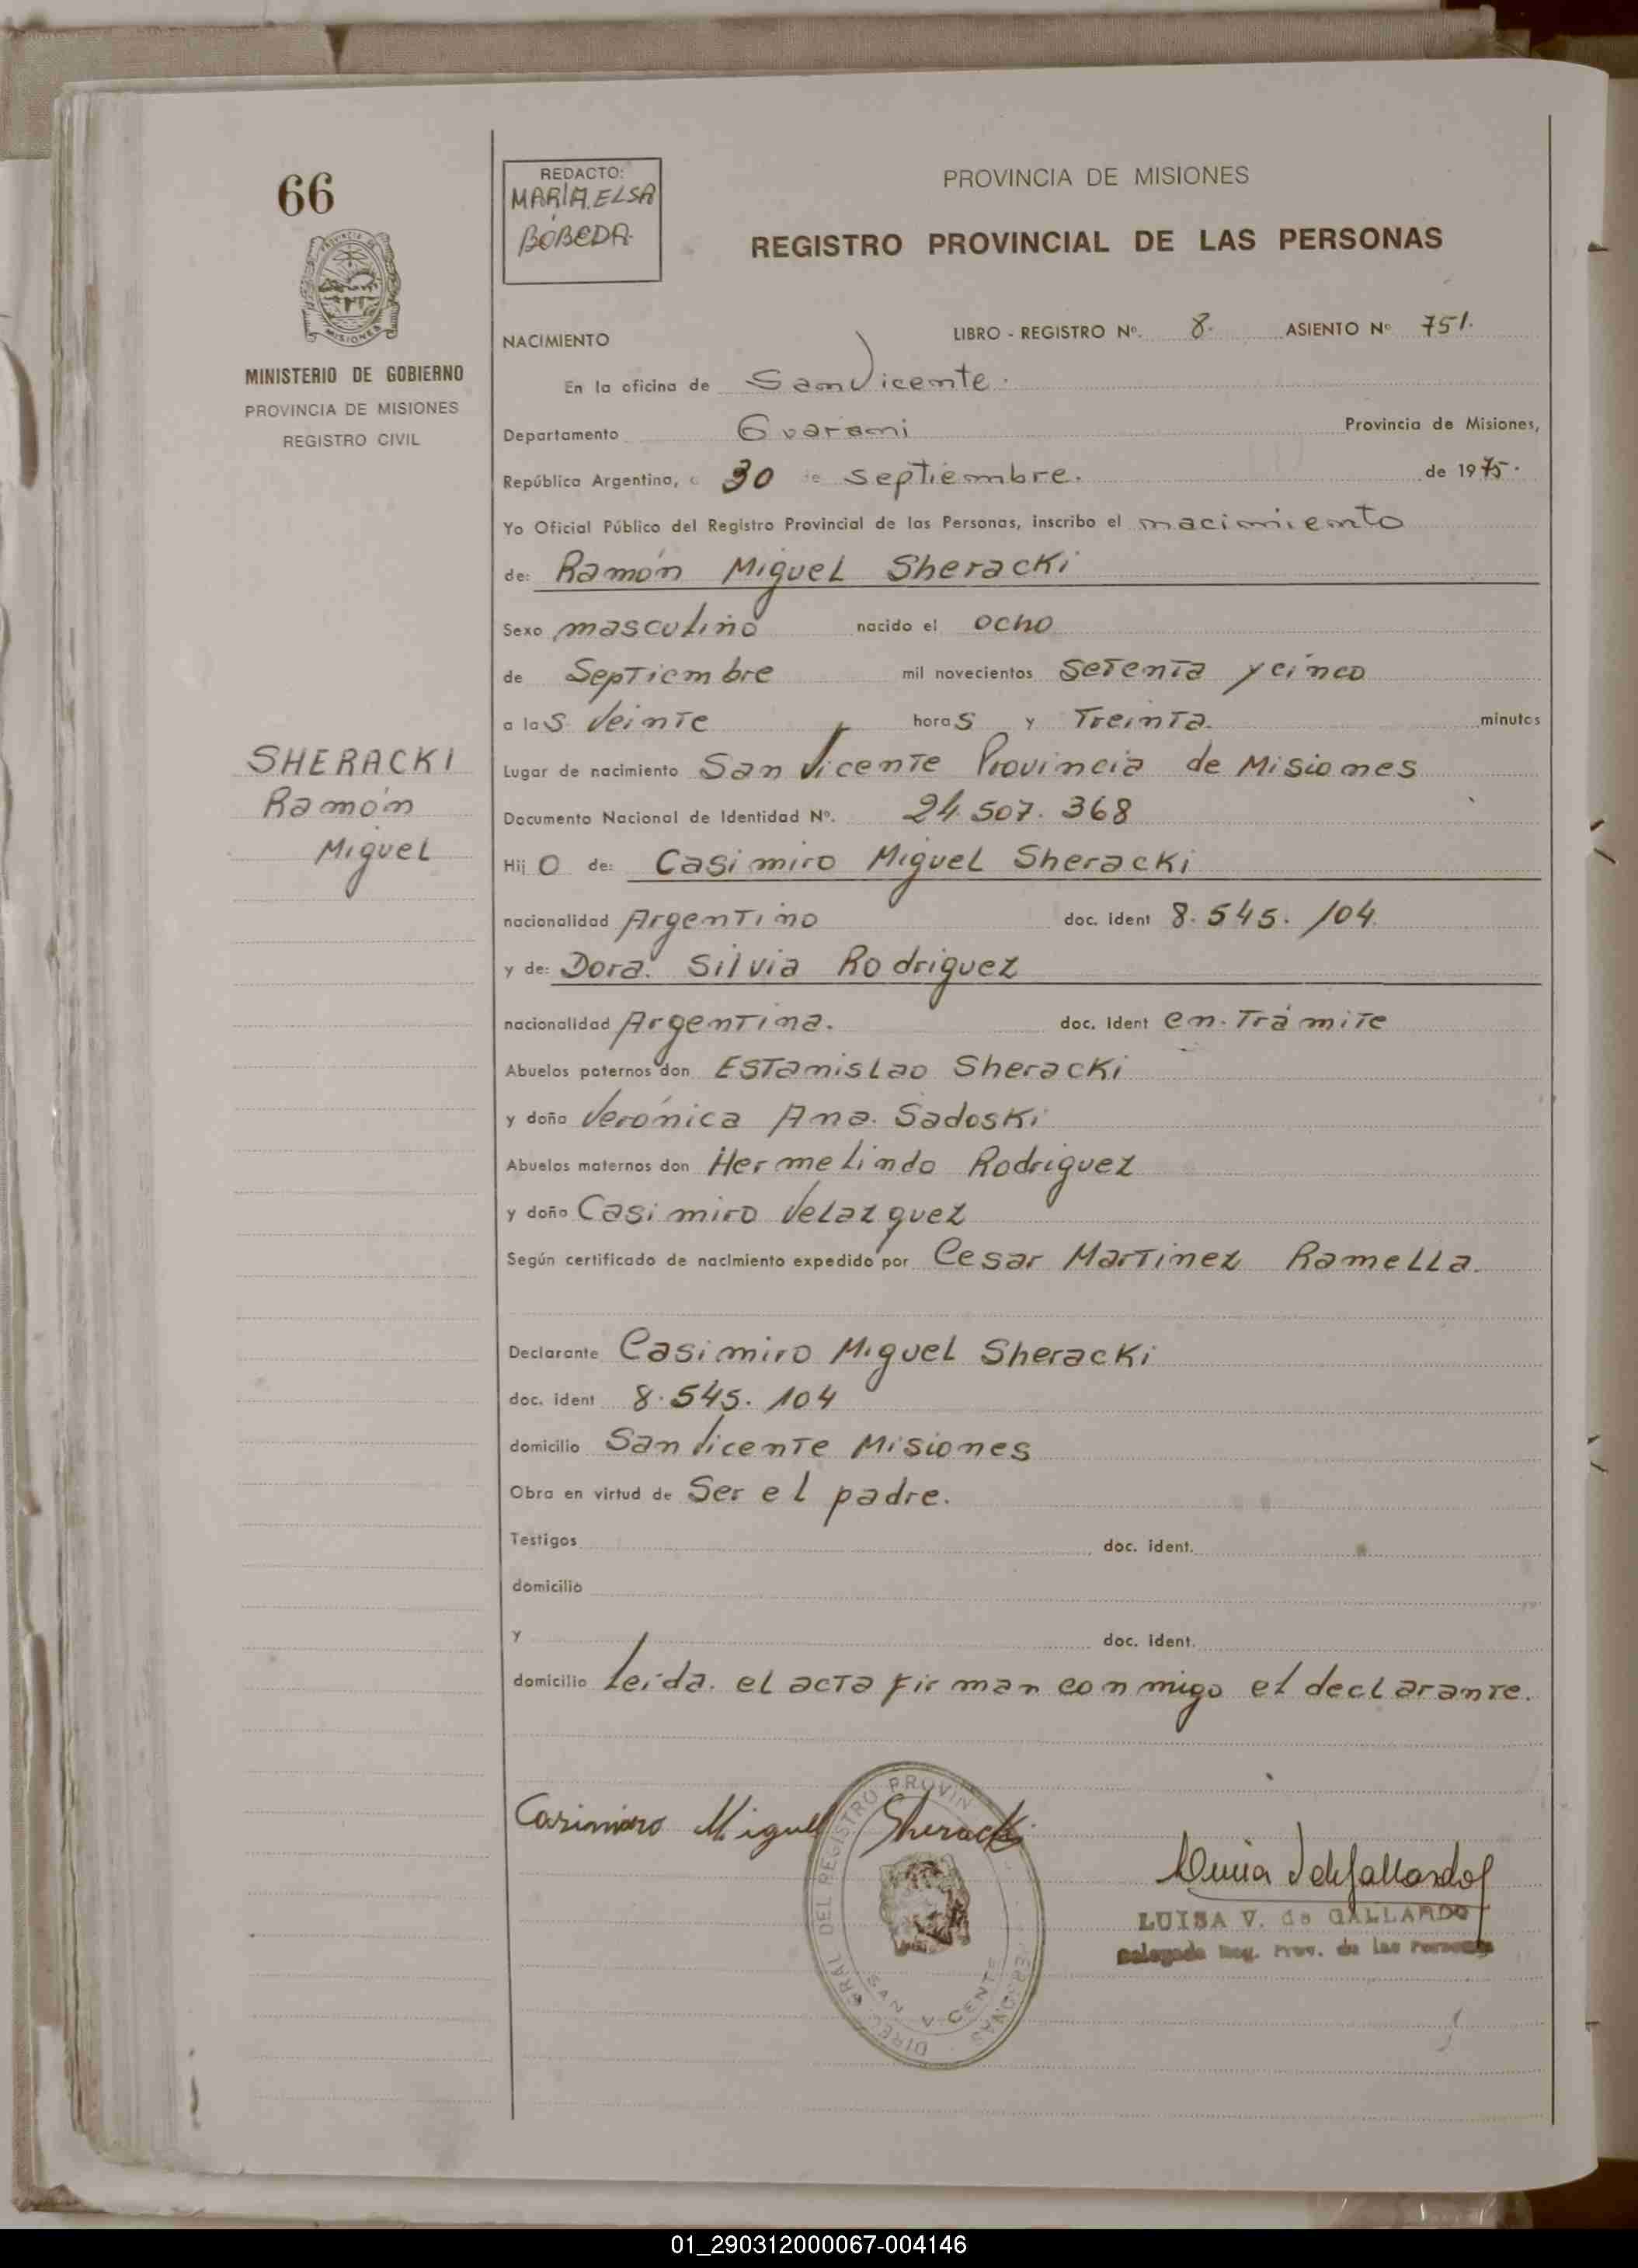 66
PROVINCIA DE
MISIONES
MINISTERIO DE GOBIERNO
PROVINCIA DE MISIONES
REGISTRO CIVIL
SHERACKI
Ramón
Miguel
REDACTO:
MARÍA ELSA
BÓBEDA.
PROVINCIA DE MISIONES
REGISTRO PROVINCIAL DE LAS PERSONAS
NACIMIENTO LIBRO - REGISTRO Nº. 8. ASIENTO Nº 751.
En la oficina de San Vicente.
Departamento Guarani Provincia de Misiones,
República Argentina, a 30 de Septiembre. de 1975.
Yo Oficial Público del Registro Provincial de las Personas, inscribo el nacimiento
de: Ramón Miguel Sheracki
Sexo masculino nacido el ocho
de Septiembre mil novecientos setenta y cinco
a las veinte horas y Treinta. minutos
Lugar de nacimiento San Vicente Provincia de Misiones
Documento Nacional de Identidad Nº. 24.507.368
Hijo de: Casimiro Miguel Sheracki
nacionalidad Argentino doc. ident 8.545.104.
y de: Dora. Silvia Rodriguez
nacionalidad Argentina. doc. ident en. Trámite
Abuelos paternos don Estanislao Sheracki
y doña Verónica Ana. Sadoski
Abuelos maternos don Hermelindo Rodriguez
y doña Casimiro Velazquez
Según certificado de nacimiento expedido por Cesar Martinez Ramella.
Declarante Casimiro Miguel Sheracki
doc. ident 8.545.104
domicilio San Vicente Misiones
Obra en virtud de Ser el padre.
Testigos doc. ident.
domicilio
y doc. ident.
domicilio Leída. el acta firman conmigo el declarante.
Casimiro Miguel Sheracki
DIREC. GRAL DEL REGISTRO PROVIN
PERSONAS
SAN VICENTE
LUISA V. de GALLARDO
Delegada Reg. Prov. de las Personas
01_290312000067-004146